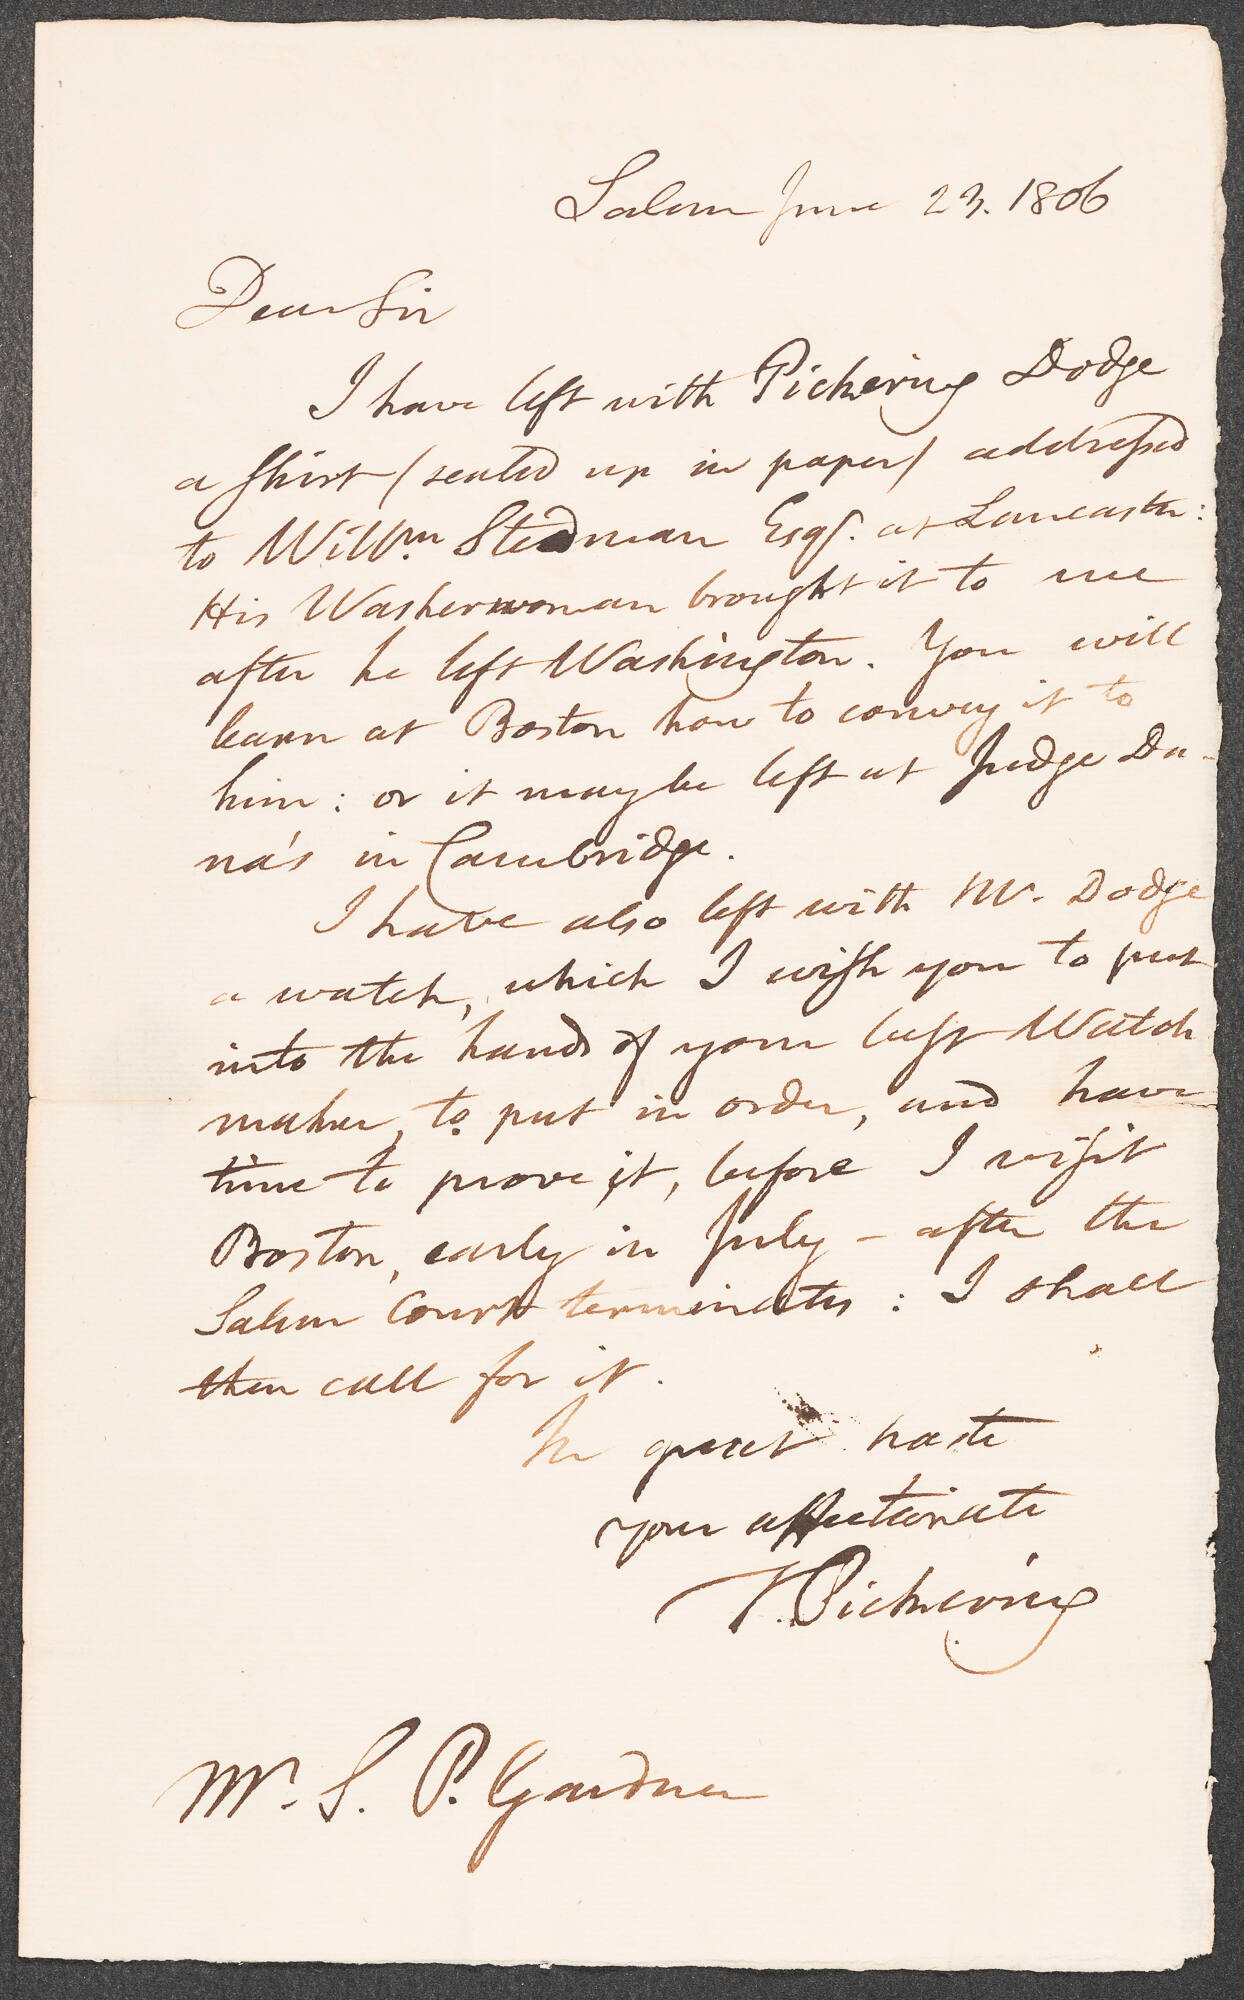 Salem June 23. 1806
Dear Sir
I have left with Pickering Dodge
a shirt (sealed up in paper) addressed
to Willm. Stedman Esqr. at Lancaster:
His Washerwoman brought it to me
after he left Washington. You will
learn at Boston how to convey it to
him: or it may be left at Judge Da-
na's in Cambridge.
I have also left with Mr. Dodge
a watch, which I wish you to put
into the hands of your best Watch
maker, to put in order, and have
time to prove it, before I visit
Boston, early in July - after the
Salem Court terminates: I shall
then call for it.
In great haste
your affectionate
T. Pickering
Mr. S. P. Gardner